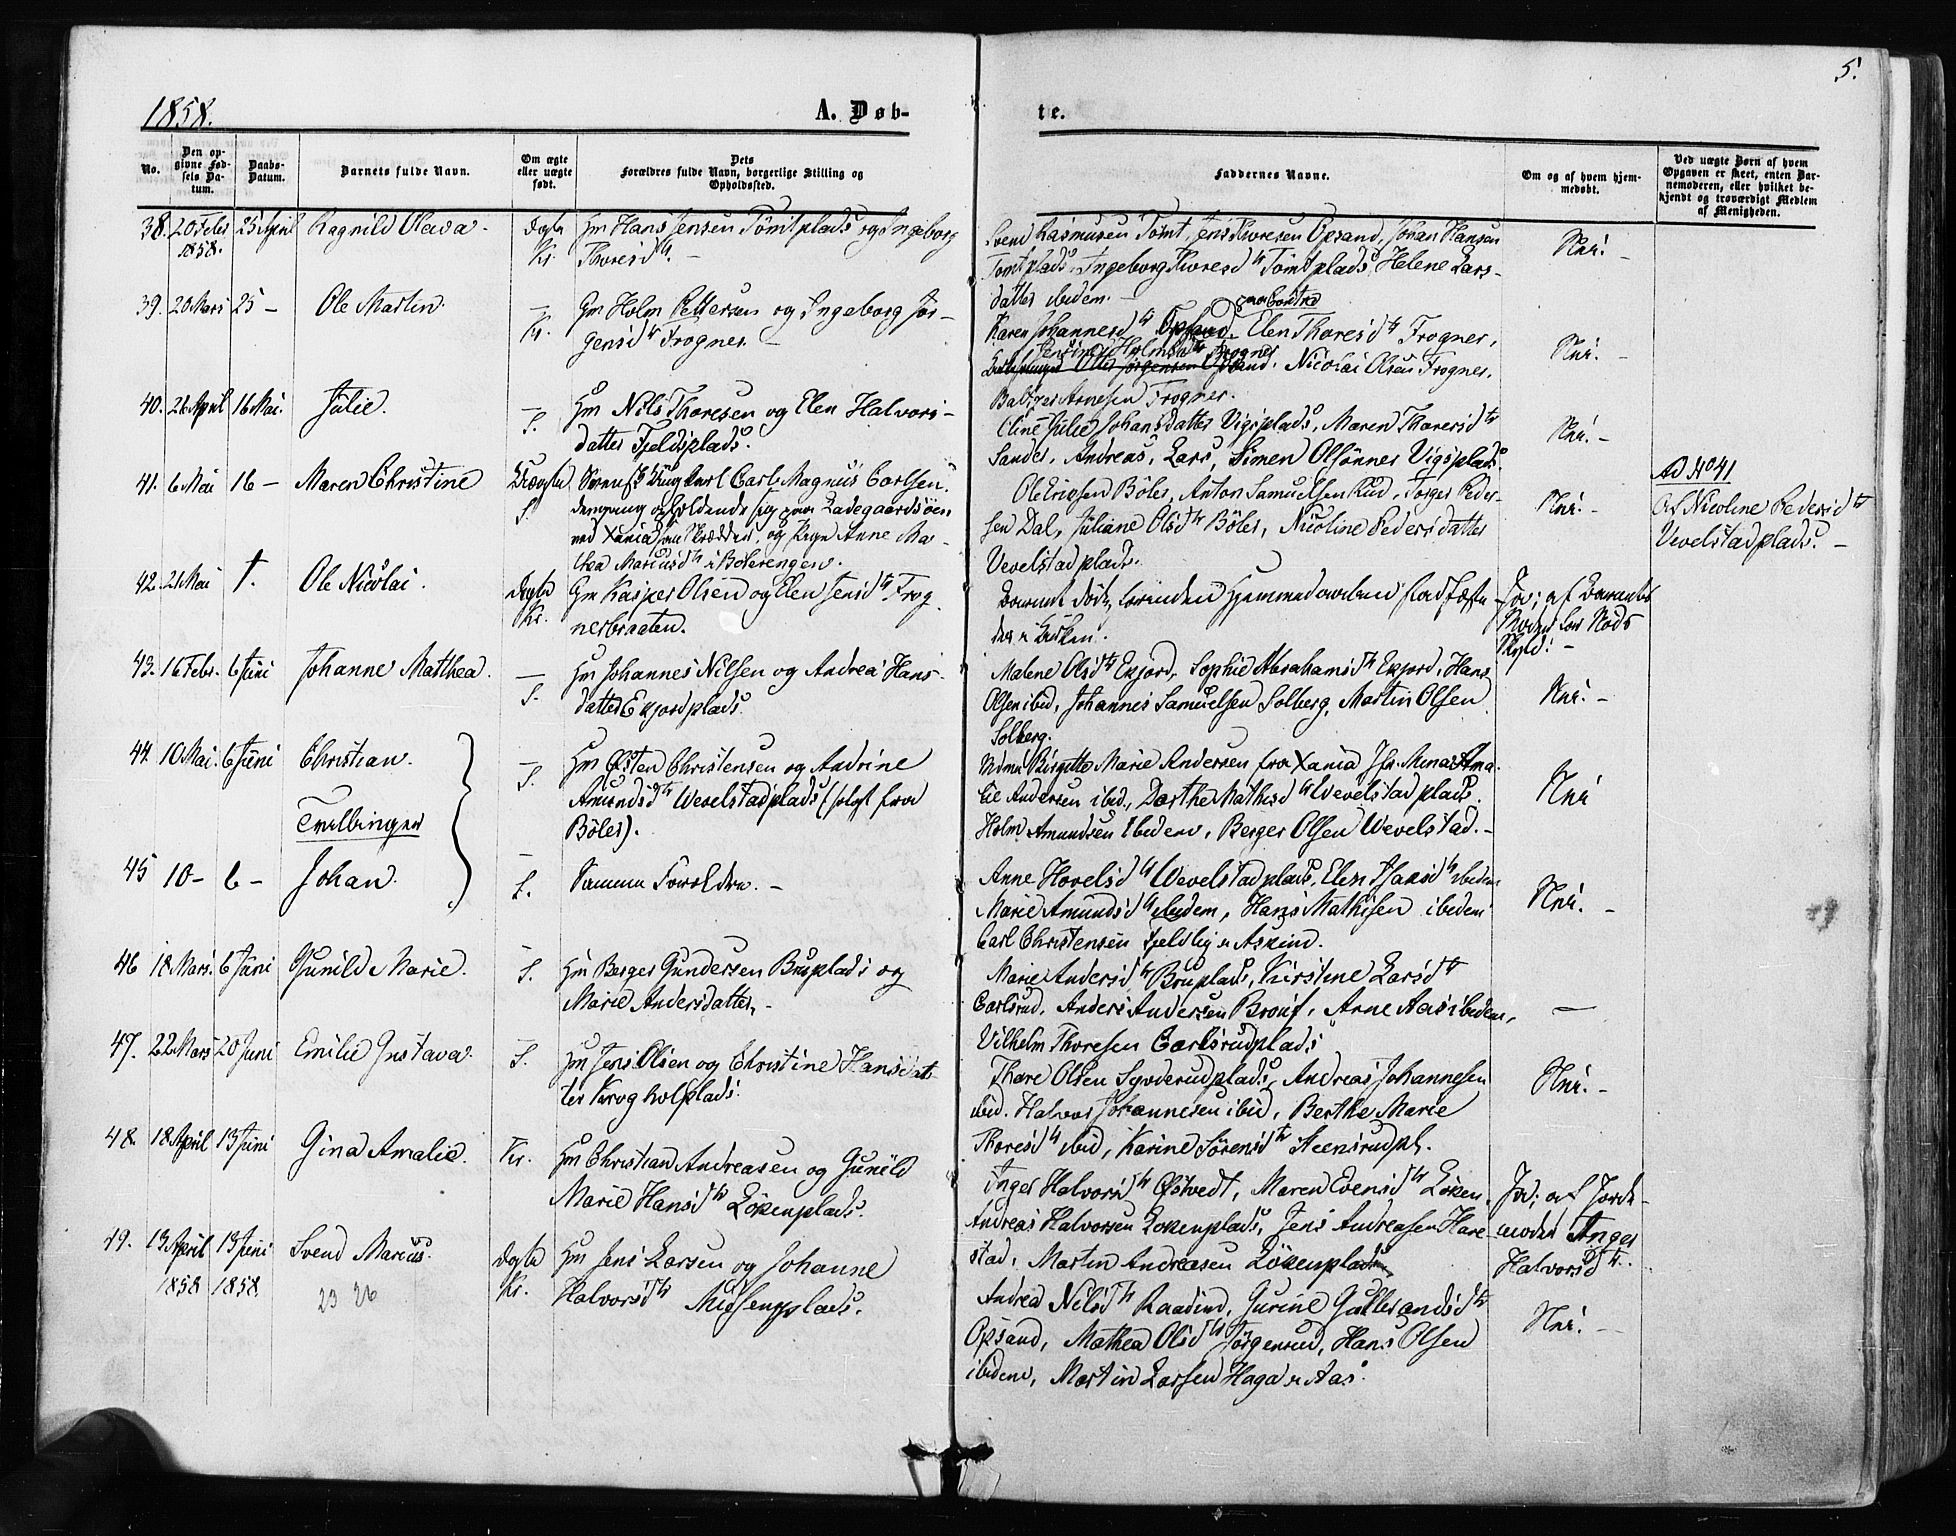 5.
1858.
A. Døb-
te.
No.
Den op-
givne Fød-
sels Da-
tum.
Daabs-
Datum.
Barnets fulde Navn.
Om ægte
eller uægte
født.
Dets
Forældres fulde Navn, borgerlige Stilling og
Opholdssted.
Faddernes Navne.
Om og af hvem hjem-
medøbt.
Ved uægte Børn af hvem
Opgaven er skeet, enten Bar-
nemoderen, eller hvilket be-
kjendt og troværdigt Medlem
af Menigheden.
38. 20 Febr 25 April Ragnild Olava. Ægte Hm Hans Jensen Tomtplads og Ingeborg
1858. Kr. Thoresd tr. –
Svend Rasmusen Tomt, Jens Thoresen Opsand, Johan Hansen
Tomtplads, Ingeborg Thoresd tr Tomtplads, Helene Lars-
datter ibidem. –
Nei. –
39. 20 Mars 25 – Ole Martin. – Gm Holm Pettersen og Ingeborg Jør-
Kr. gensd tr Frogner. –
Karen Johannesd tr Opsand, Elen Thoresd tr Frogner,
Jensine Holmsd tr Frogner
Nicolai Olsen Frogner,
Baltzer Arnesen Frogner.
Nei. –
40. 26 April 16 Mai. Julie. – Hm Nils Thoresen og Elen Halvors-
S. datter Fjeldsplads.
Eline Julie Johansdatter Vigsplads, Maren Thoresd tr
Sander, Andreas, Lars, Simen Olsønner Vigsplads.
Nei. –
41. 6 Mai 16 – Maren Christine Uægte Carl Magnus Carlsen.
S. Ladegaardsøen
ved Xania og Pige Anne Ma-
thea Mariusd tr i Bølerengen.
Ole Ericksen Böler, Anton Samuelsen Rud, Torger Peder-
sen Dal, Juliane Olsd tr Böler, Nicoline Pedersdatter
Vevelstadplads.
Nei. –
Ad No 41
Af Nicoline Pedersd tr
Vevelstadplads. –
42. 21 Mai †. Ole Nicolai. Ægte Gm Kasper Olsen og Elen Jensd tr Frog-
Kr. nerbraaten.
Barnet døde, forinden Hjemmedaaben stadfæste-
des i Kirken.
Ja; af Barnets
Moder for Nøds
Skyld. –
43. 16 Febr. 6 Juni Johanne Matthea. – Hm Johannes Nilsen og Andrea Hans-
S. datter Exjordplads.
Malene Olsd tr Exjord, Sophie Abrahamsd tr Exjord, Hans
Olsen ibid, Johannes Samuelsen Solberg, Martin Olsen
Solberg.
Nei. –
44. 10 Mai. 6 Juni Christian. – Hm Østen Christensen og Andrine
S. Amundsd tr Wevelstadplads (født fra
Böler).
Tvillinger
Mdme Birgitte Marie Andersen fra Xania, Jfr Mina Ama-
lie Andersen ibid., Dorthe Mathisd tr Wevelstadplads,
Holm Amundsen ibidem, Berger Olsen Wevelstad. –
Nei
45 10 – 6 – Johan. – Samme Forældre. –
S.
Anne Hovelsd tr Wevelstadplads, Elen Hansd tr ibidem
Marie Amundsd tr ibidem, Hans Mathisen ibidem
Carl Christensen Fjeldlig i Askim.
Nei. –
46 18 Mars. 6 Juni Gunild Marie. – Hm Berger Gundersen Bruplads og
S. Marie Andersdatter. –
Marie Andersd tr Bruplads, Kirstine Larsd tr
Carlsrud, Anders Andersen Broui, Arne Aas ibidem,
Vilhelm Thoresen Carlsrudplads
–
47. 22 Mars 20 Juni Emilie Gustava. – Hm Jens Olsen og Christine Hansdat-
S. ter Krogholplads.
Thore Olsen Syverudplads, Andreas Johannesen
ibid. Halvor Johannesen ibid, Berthe Marie
Thoresd tr ibid, Karine Sörensd tr Steensrudpl.
Nei. –
48. 18 April 13 Juni Gina Amalie. Kr. Hm Christian Andreasen og Gunild
Marie Hansd tr Lökenplads.
Inger Halvorsd tr Østvedt, Maren Evensd tr Löken,
Andreas Halvorsen Lökenplads, Jens Andreasen Hare-
stad, Martin Andreasen Lökenplads
Ja; af Jorde-
moder Inger
Halvorsd tr.
49. 13 April 13 Juni Svend Marius. Ægte Hm Jens Larsen og Johanne
1858 1858. Kr. Halvorsd tr Nissenplads.
23 26
Andrea Nilsd tr Raadim, Gurine Gulbrandsd tr
Opsand, Mathea Olsd tr Jörgensrud, Hans Olsen
ibidem, Martin Larsen Haga i Aas.
Nei. –